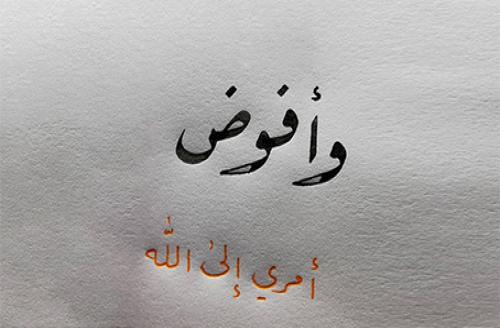 وأفوض
أمري إلىٰ الله